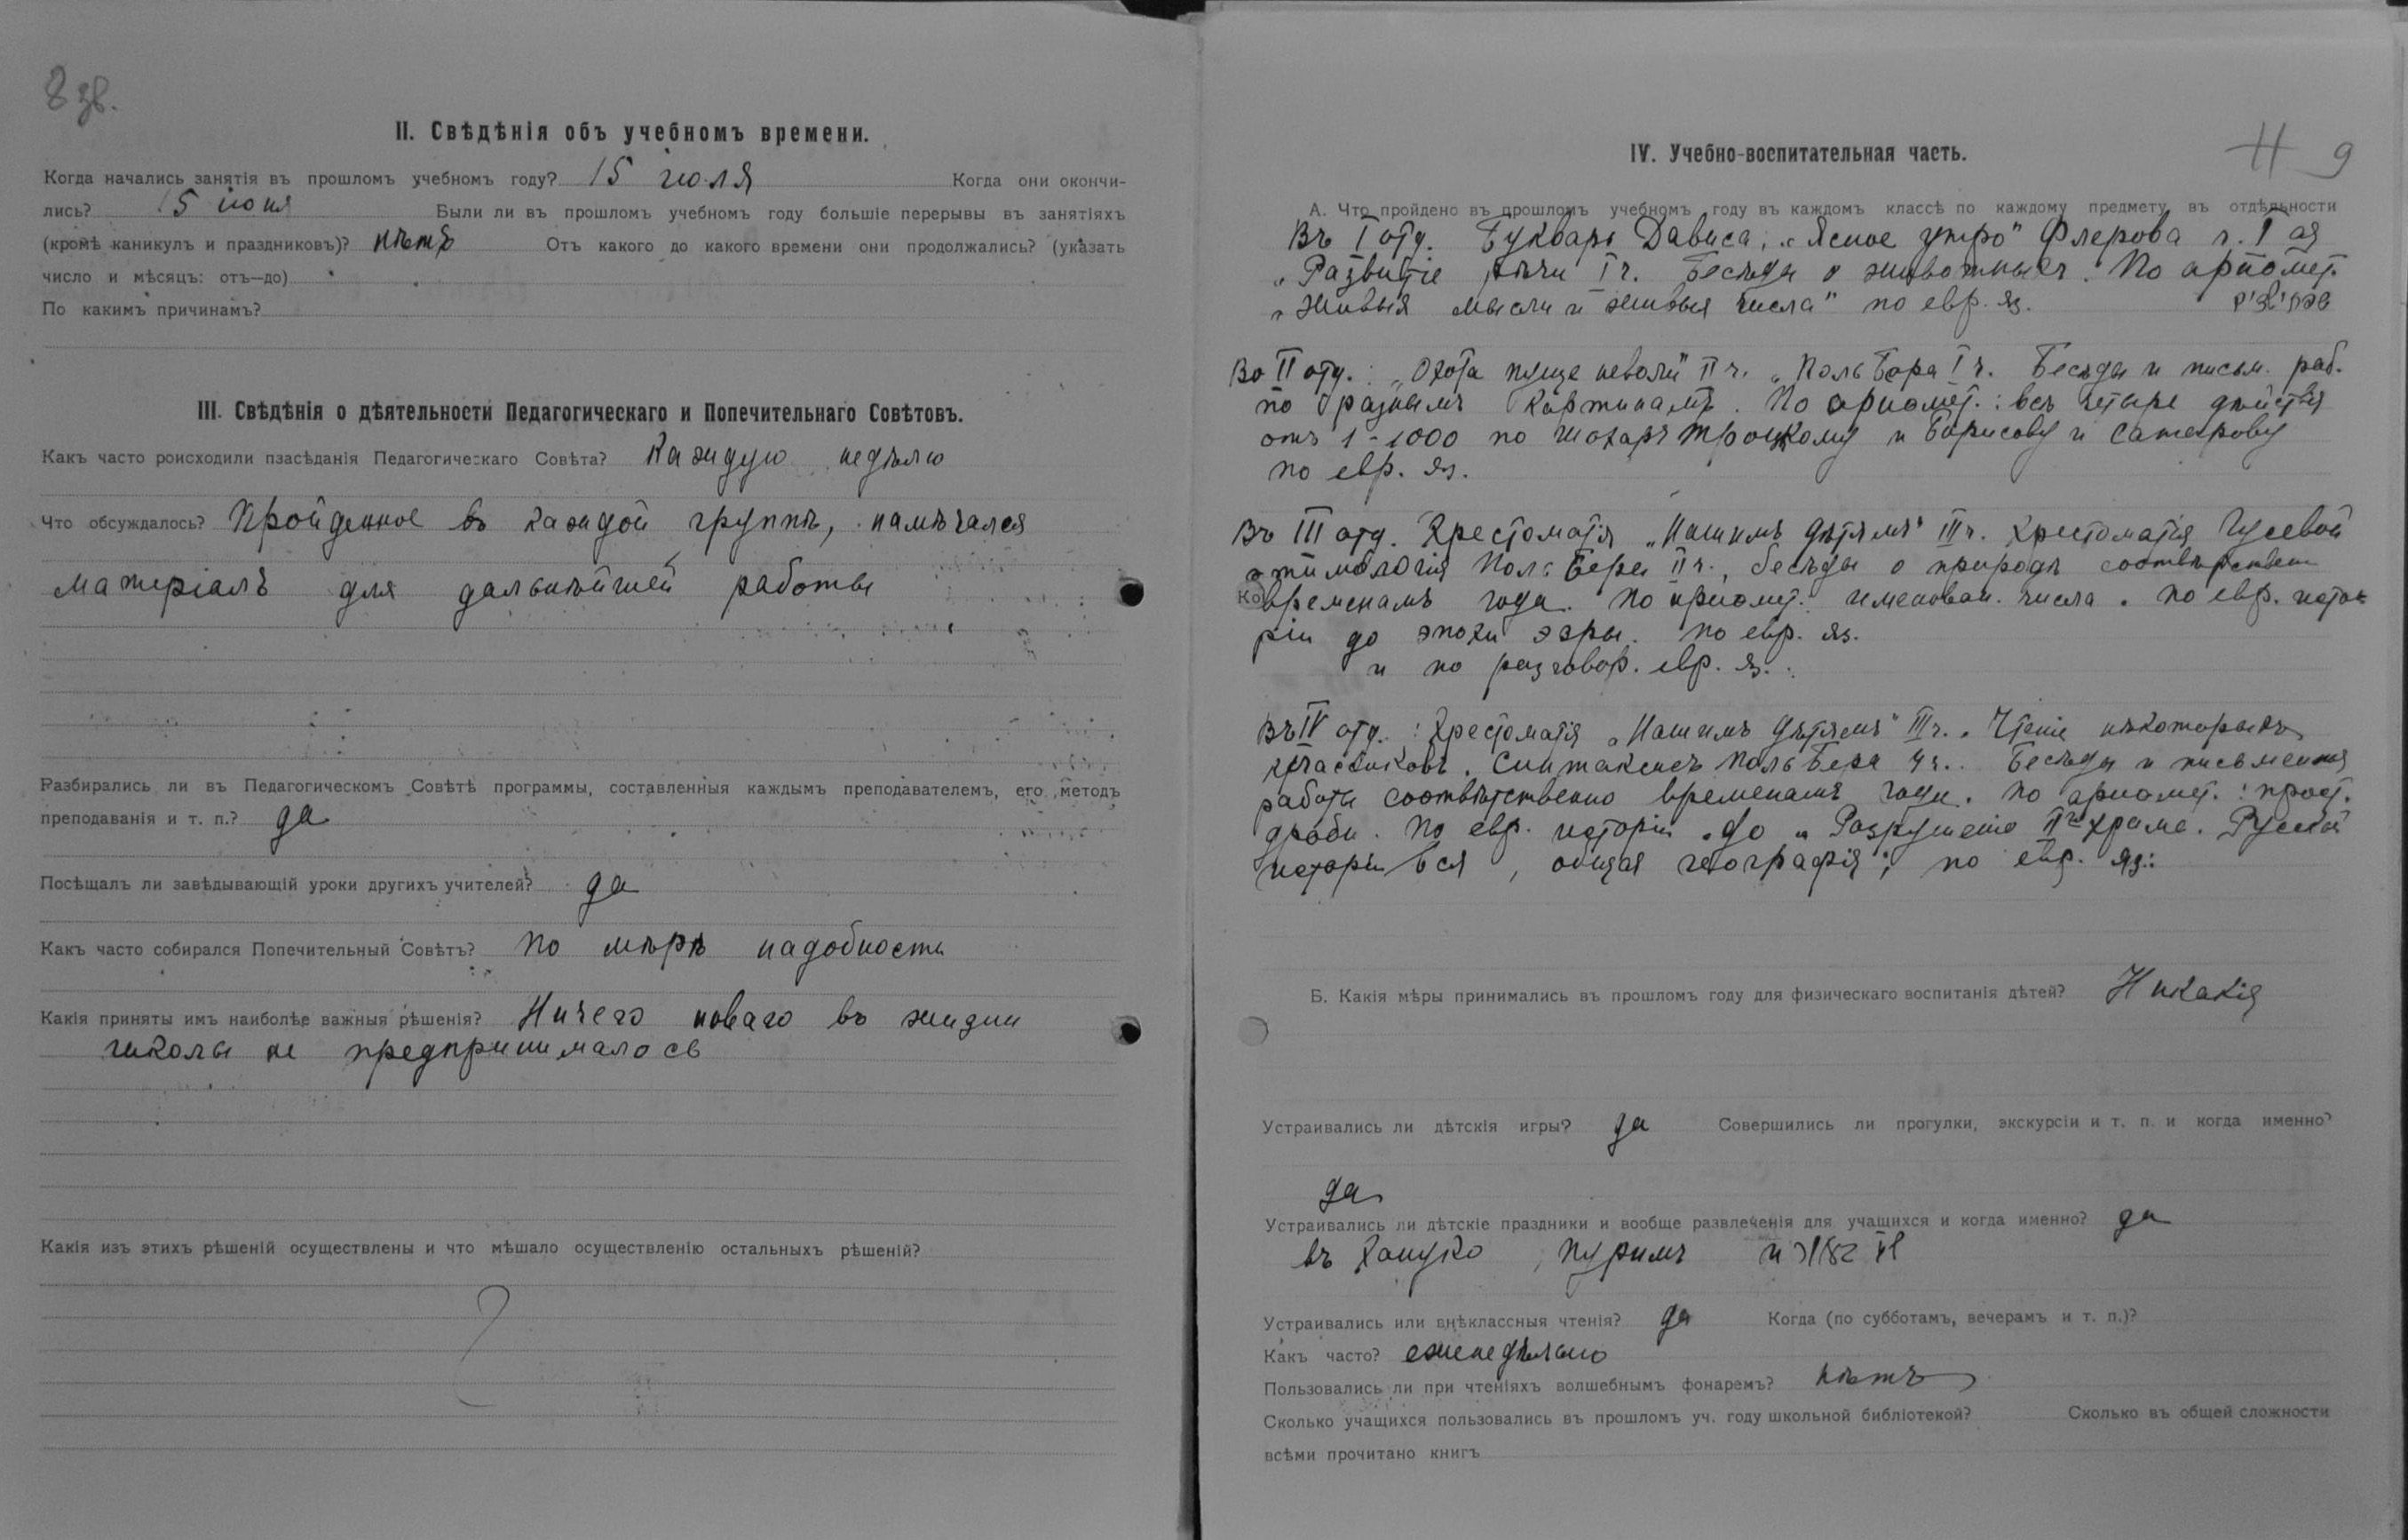 8 зв.
II. Свѣдѣнія объ учебномъ времени.
Когда начались занятія въ прошломъ учебномъ году? 15 июля Когда они окончи-
лись? 15 июня Были ли въ прошломъ учебномъ году большіе перерывы въ занятіяхъ
(кромѣ каникулъ и праздниковъ)? нѣтъ Отъ какого до какого времени они продолжались? (указать
число и мѣсяцъ: отъ—до)
По какимъ причинамъ?
III. Свѣдѣнія о дѣятельности Педагогическаго и Попечительнаго Совѣтовъ.
Какъ часто роисходили пзасѣданія Педагогическаго Совѣта? Каждую недѣлю
Что обсуждалось? Пройденное въ каждой группѣ, намѣчался
матеріалъ для дальнѣйшей работы
Разбирались ли въ Педагогическомъ Совѣтѣ программы, составленныя каждымъ преподавателемъ, его методъ
преподаванія и т. п.? да
Посѣщалъ ли завѣдывающій уроки другихъ учителей? да
Какъ часто собирался Попечительный Совѣтъ? По мѣрѣ надобности
Какія приняты имъ наиболѣе важныя рѣшенія? Ничего новаго въ жизни
школы не предпринималось
Какія изъ этихъ рѣшеній осуществлены и что мѣшало осуществленію остальныхъ рѣшеній?
?
9
IV. Учебно-воспитательная часть.
А. Что пройдено въ прошломъ учебномъ году въ каждомъ классѣ по каждому предмету въ отдѣльности
Въ I отд. Букварь Дависа, „Ясное утро" Флерова ч. 1 ая
„Развитіе рѣчи I ч. Бесѣды о животныхъ. По ариѳмет.
„Живыя мысли и живыя числа" по евр. яз.
Во II отд.: „Охота пуще неволи" II ч. „Поль Бера I ч. Бесѣды и письм. раб.
по разнымъ картинамъ. По ариѳмет.: всѣ четыре дѣйствія
отъ 1-1000 по Шохоръ Троцкому и Борисову и Сатарову
по евр. яз.
Въ III отд. Хрестоматія „Нашимъ дѣтямъ" III ч. Хрестоматія Гусевой
этимологія Поль Бера II ч., бесѣды о природѣ соотвѣтствен
временамъ года. По ариѳмет. именован. числа. По евр. исто
ріи до эпохи эзры. по евр. яз.
и по разговор. евр. яз.
Въ IV отд.: Хрестоматія „Нашимъ дѣтямъ" III ч. Чтеніе нѣкоторыхъ
классиковъ. Синтаксисъ Поль Бера ч. Бесѣды и письменныя
работы соотвѣтственно временамъ года. По ариѳмет.: прост.
дроби. По евр. исторіи до „Разрушенія II го храма. Русская
исторія вся, общая географія; по евр. яз.:
Б. Какія мѣры принимались въ прошломъ году для физическаго воспитанія дѣтей? Никакія
Устраивались ли дѣтскія игры? да Совершились ли прогулки, экскурсіи и т. п. и когда именно?
да
Устраивались ли дѣтскіе праздники и вообще развлеченія для учащихся и когда именно? да
въ Хануко, Пуримъ и
Устраивались или внѣклассныя чтенія? да Когда (по субботамъ, вечерамъ и т. п.)?
Какъ часто? еженедѣльно
Пользовались ли при чтеніяхъ волшебнымъ фонаремъ? нѣтъ
Сколько учащихся пользовались въ прошломъ уч. году школьной библіотекой? Сколько въ общей сложности
всѣми прочитано книгъ